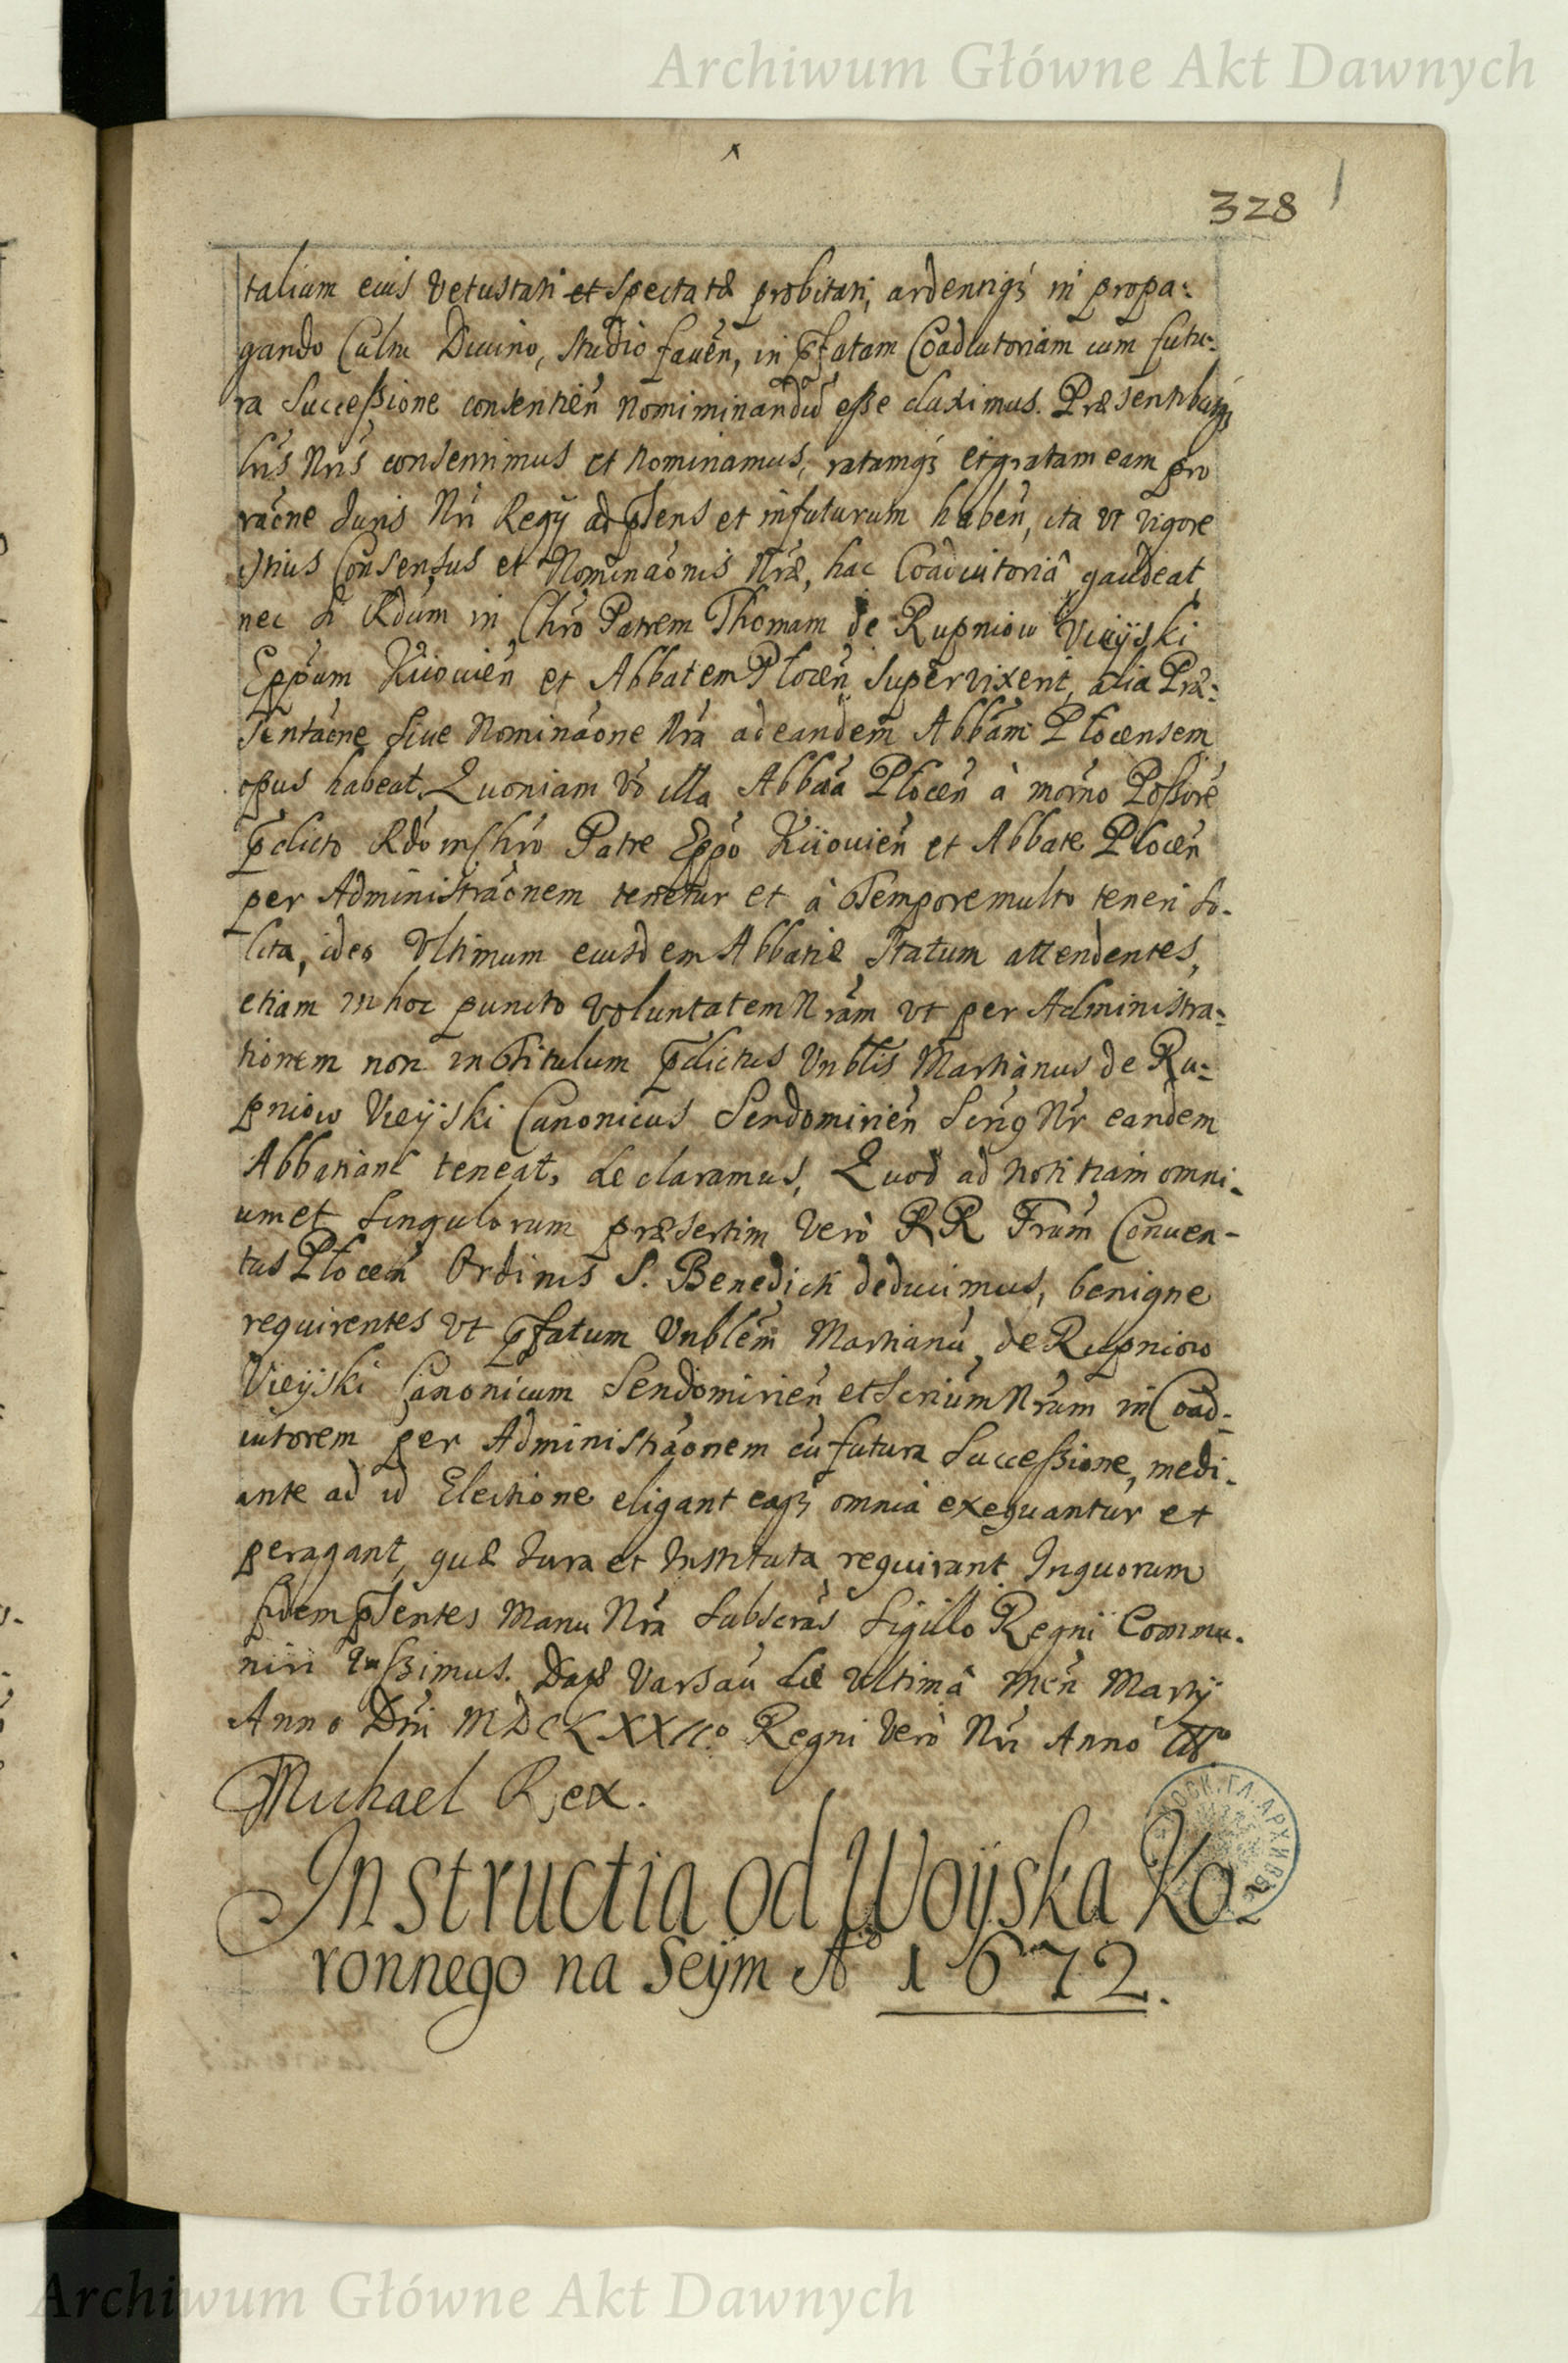 Archiwum Główne Akt Dawnych
328
talium eius Vetustati et Spectatæ probitati, ardentiq3 in propa:
gando Cultu Diuino, studio fauen̄, in p̄fatam Coadiutoriam cum futu:
ra Successione consentien̄ Nomiminandū esse duximus. Præsentibusq3
Lr̄is Nr̄is consentimus et Nominamus, ratamq3 et gratam eam pro
rāōne Juris Nr̄i Regÿ ad p̄sens et in futurum haben̄, ita vt vigore
istius Consensus et Nominaōnis Nr̄æ, hac Coadiutoriâ gaudeat
nec si Rdūm in Chr̄o Patrem Thomam de Rupniow Vieÿski
Epp̄um Kiiouien̄ et Abbatem Płocen̄ Supervixerit, alia Præ:
sentāōne Siue Nomināōne Nr̄a ad eandem Abbām Płocensem
opus habeat. Quoniam Vō illa Abbāa Płocen̄ à mōrno Possōre
p̄dicto Rdō in Chr̄o Patre Epp̄o Kiiouien̄ et Abbate Płocen̄
per Administrāōnem tenetur et à Tempore multo teneri So-
lita, ideo Vltimum eiusdem Abbatiæ Statum attendentes,
etiam in hoc puncto Voluntatem Nr̄am vt per Administra:
tionem non in Titulum p̄dictus Vnblīs Martianus de Ru:
pniow Vieÿski Canonicus Sendomirien̄ Secr̄ig Nr̄ eandem
Abbatiam teneat, declaramus, Quod ad notitiam omni-
um et Singulorum præsertim Verò RR Frūm Conuen-
tus Płocen̄ Ordinis S. Benedicti deducimus, benigne
requirentes vt p̄fatum Vnblēm Martianū de Rupniow
Vieÿski Canonicum Sendomirien̄ et Secr̄ium Nr̄um in Coad-
iutorem per Administrāōnem cū futura Successione, medi-
ante ad id Electione eligant eaq3 omnia exequantur et
peragant, quæ Jura et Instituta requirant. In quorum
fidem p̄sentes Manu Nr̄a Subscrās Sigillo Regni Commu-
niri Iussimus. Dat Varsau die Vltimâ Men̄ Martÿ
Anno Dn̄i MDCLXXIIº Regni Verò Nr̄i Anno IIIº
Michael Rex.
Instructia od Woÿska Ko-
ronnego na Seÿm Aº 1672.
Archiwum Główne Akt Dawnych